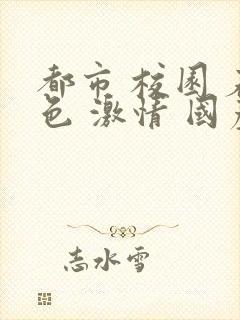 都市 校園
色 激情 國
志水雪